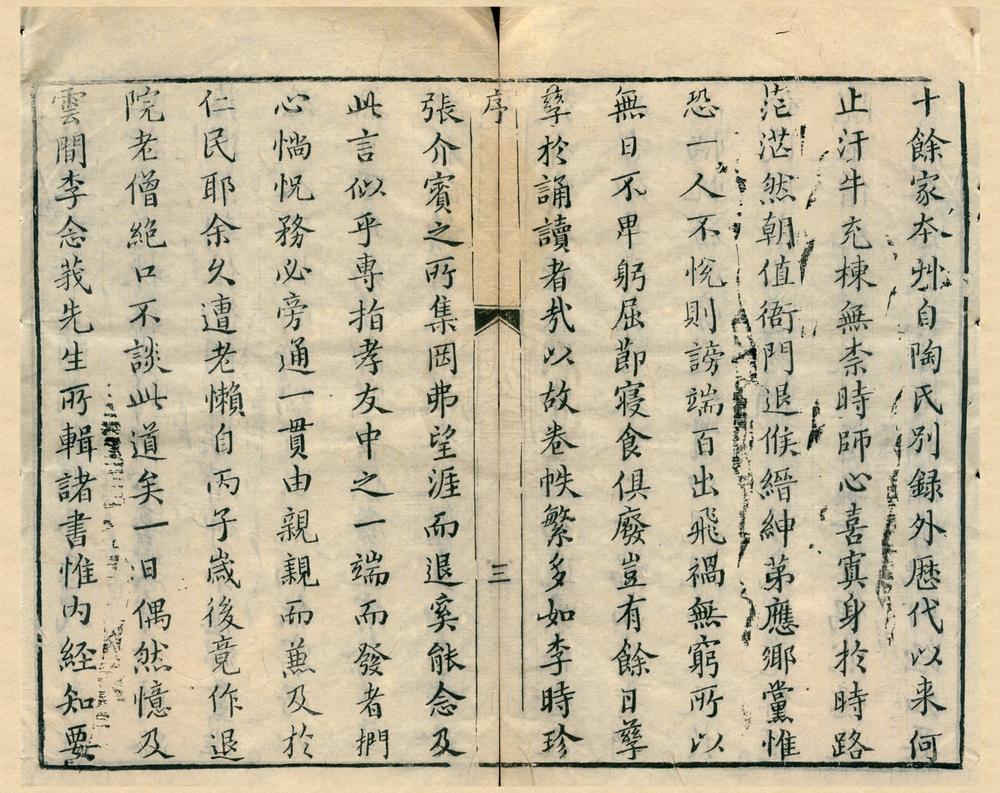 十餘家本艸自陶氏別録外歴代以来何
止汗牛充棟無柰時師心喜寘身於時路
茫茫然朝值衙門退候縉紳苐應鄉黨惟
恐一人不悅則謗端百出飛禍無窮所以
無日不卑躬屈節寢食俱廢豈有餘日孳
孳於誦讀者㢤以故卷帙繁多如李時珍
序
三
張介賓之所集罔弗望涯而退奚能念及
此言似乎專指孝友中之一端而發者捫
心惝怳務必旁通一貫由親親而兼及於
仁民耶余久遭老懶自丙子歲後竟作退
院老僧絕口不談此道矣一日偶然憶及
雲間李念莪先生所輯諸書惟内經知要